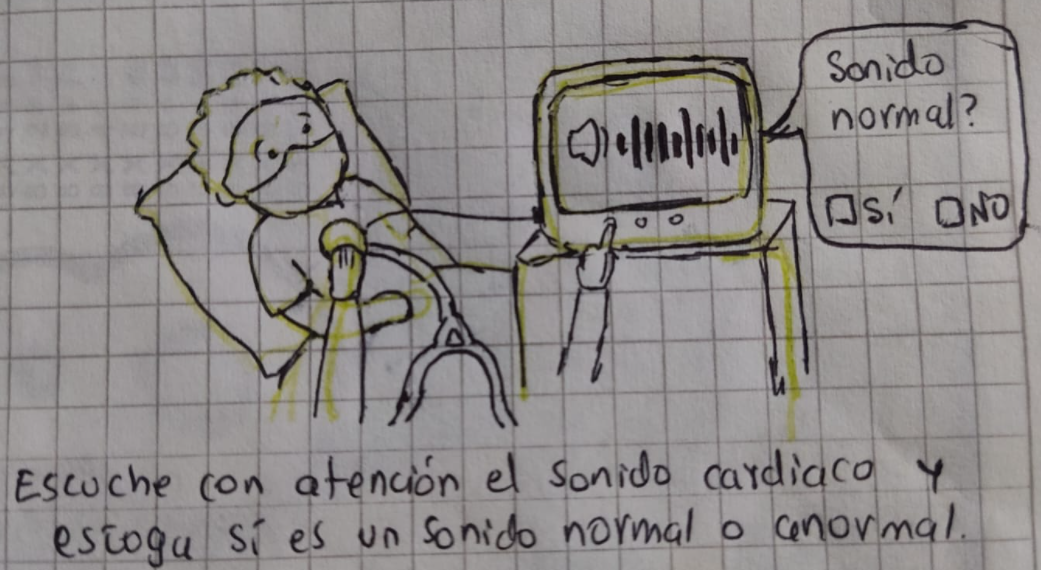 Sonido
normal?
Sí NO
Escuche con atención el sonido cardiaco y
escoga sí es un sonido normal o anormal.